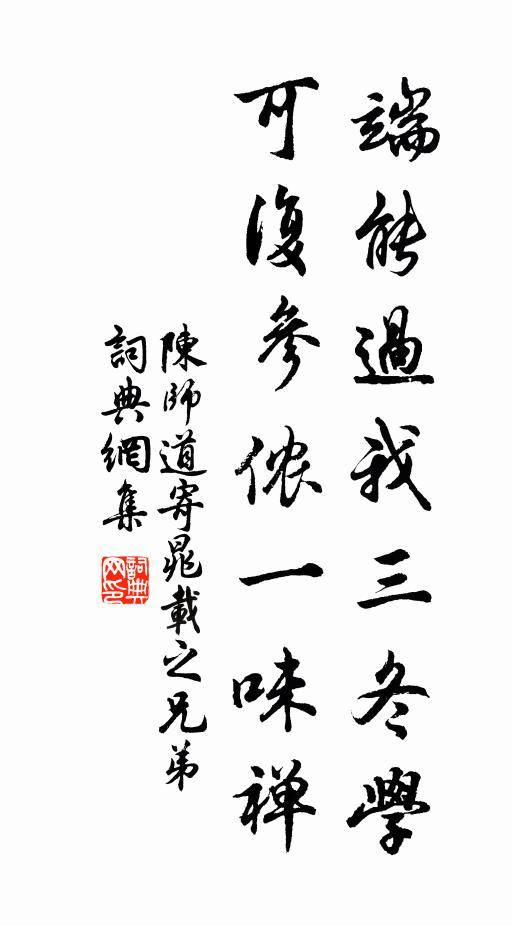 端能過我三冬學
可復參侬一味禅
陳師道寄晁載之兄弟
詞典網集
詞典
网印